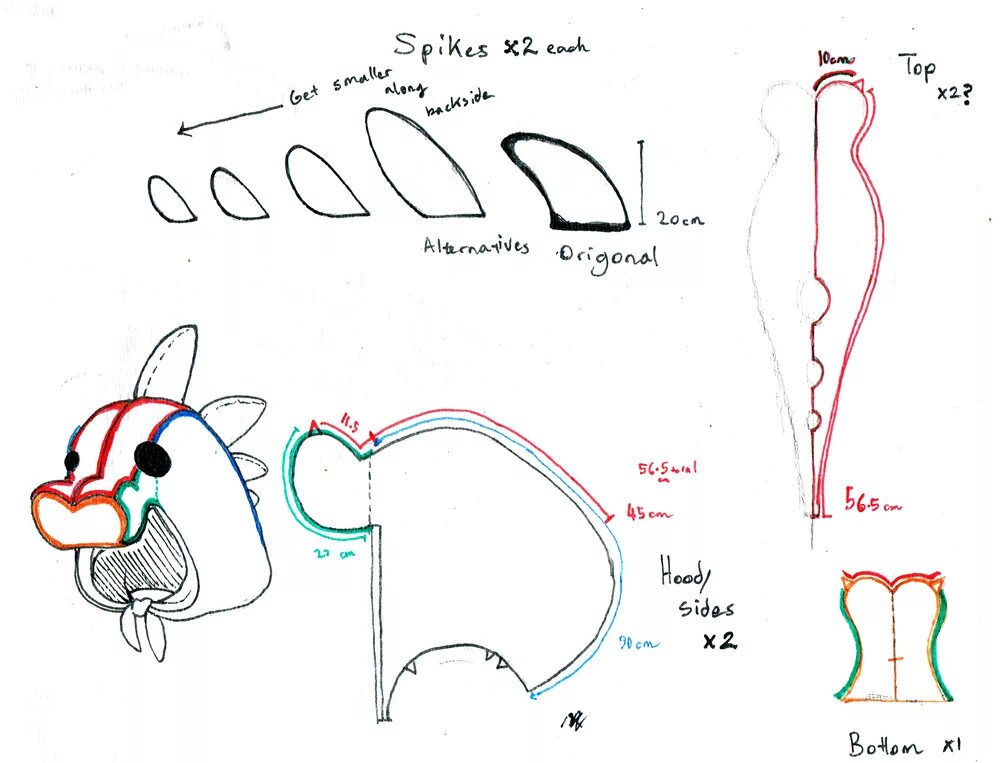 Spikes x2 each
Get smaller
along
backside
20cm
Alternatives
Origonal
10cm
Top
x2?
56.5 cm
11.5
56.5 total
cm
45cm
22 cm
Hood/
Sides
x2
90cm
Bottom x1